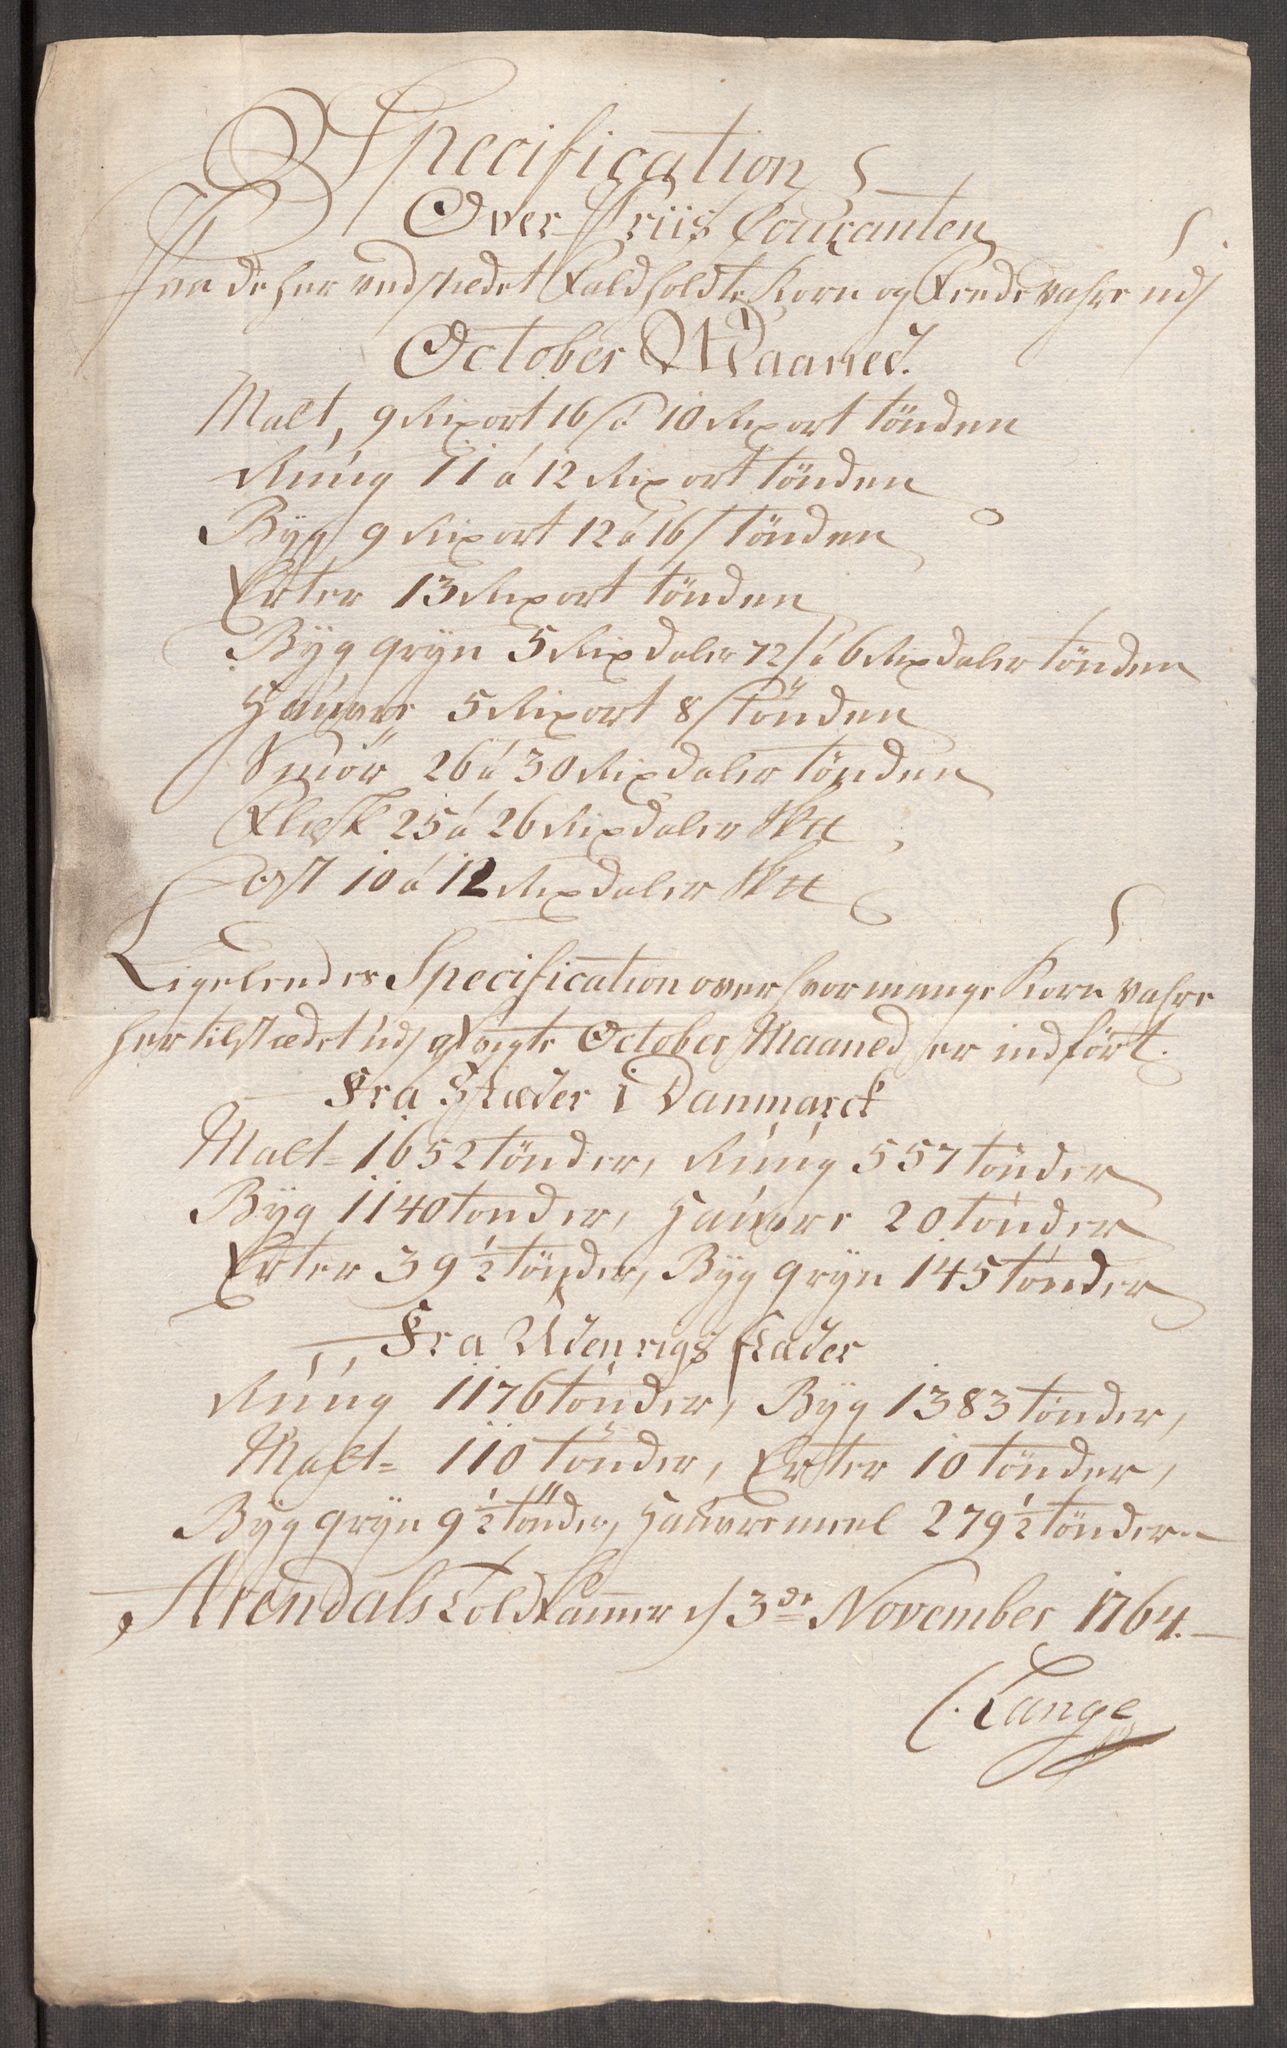 Specification
Over Priis Couranten
Paa de her ved stædet Faldholdte Korn og Fede vahre udj
October Maaned.
Malt, 9 Rixort 16 s à 10 Rixort tönden
Rúúg 11 à 12 Rixort tönden
Byg 9 Rixort 12 à 16 s tönden
Erter 13 Rixort tönden
Byg gryn 5 Rixdaler 72 s à 6 Rixdaler tönden
Haúvre 5 Rixort 8 s tönden
Smör 26 à 30 Rixdaler tönden
Flesk 25 à 26 Rixdaler
Ost 10 à 12 Rixdaler
Ligeleedes Specification over hvor mange Korn vahre
her til stædet udj October Maaned er indfört.
Fra Stæder i Danmarck
Malt= 1652 tönder, Rúúg 557 tönder
Byg 1140 tönder, Haúvre 20 tönder
Erter 39 1/2 tönder, Byg gryn 145 tönder
Fra Udenrigs stæder
Rúúg 1176 tönder, Byg 1383 tönder,
Malt= 110 tönder, Erter 10 tönder,
Byg gryn 9 1/2 tönder, Haúvremeel 279 1/2 tönder
Arendals Toldkammer d 3de November 1764.
C. Lange